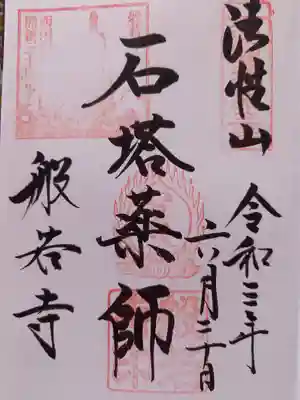 法性山
令和三年
六月二十日
石塔薬師
般若寺